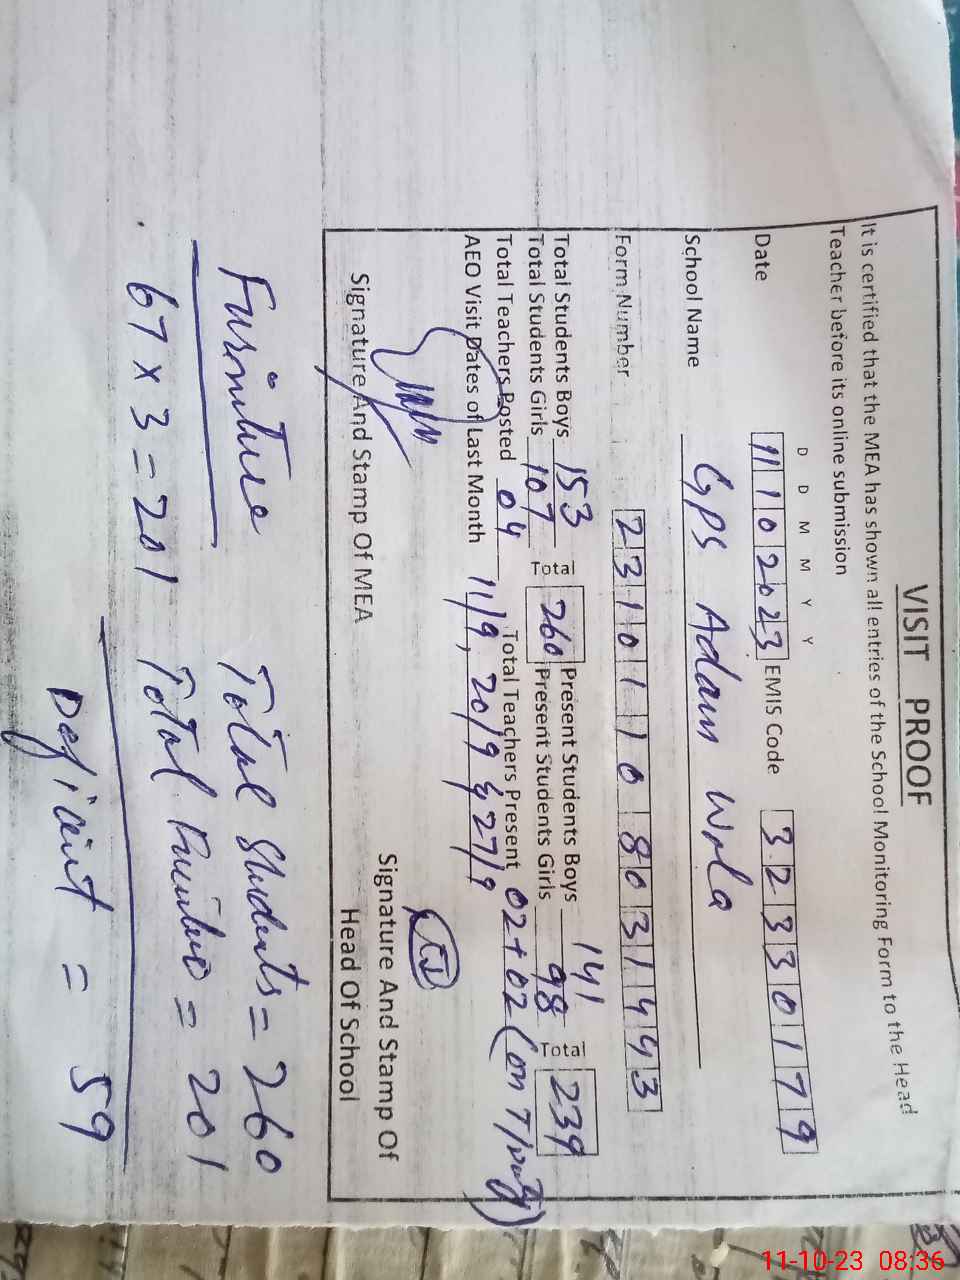 VISIT PROOF
It is certified that the MEA has shown all entries of the School Monitoring Form to the Head
Teacher before its online submission
D D M M Y Y
Date 11102023 EMIS Code 32330179
School Name GPS Adam Wala
Form Number 23101108031443
Total Students Boys 153 Total 260 Present Students Boys 141 Total 239
Total Students Girls 107 Present Students Girls 98
Total Teachers Posted 04 Total Teachers Present 02+02 (on T/Duty)
AEO Visit Dates of Last Month 11/9, 20/9 & 27/9
Signature And Stamp Of MEA
Signature And Stamp Of
Head Of School
Furniture Total Students = 260
67 x 3 = 201 Total = 201
Deficient = 59
11-10-23 08:36